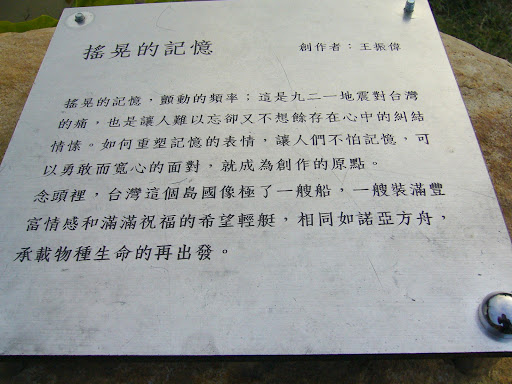 搖晃的記憶
創作者：王振偉
搖晃的記憶，顫動的頻率；這是九二一地震對台灣
的痛，也是讓人難以忘卻又不想餘存在心中的糾結
情愫。如何重塑記憶的表情，讓人們不怕記憶，可
以勇敢而寬心的面對，就成為創作的原點。
念頭裡，台灣這個島國像極了一艘船，一艘裝滿豐
富情感和滿滿祝福的希望輕艇，相同如諾亞方舟，
承載物種生命的再出發。